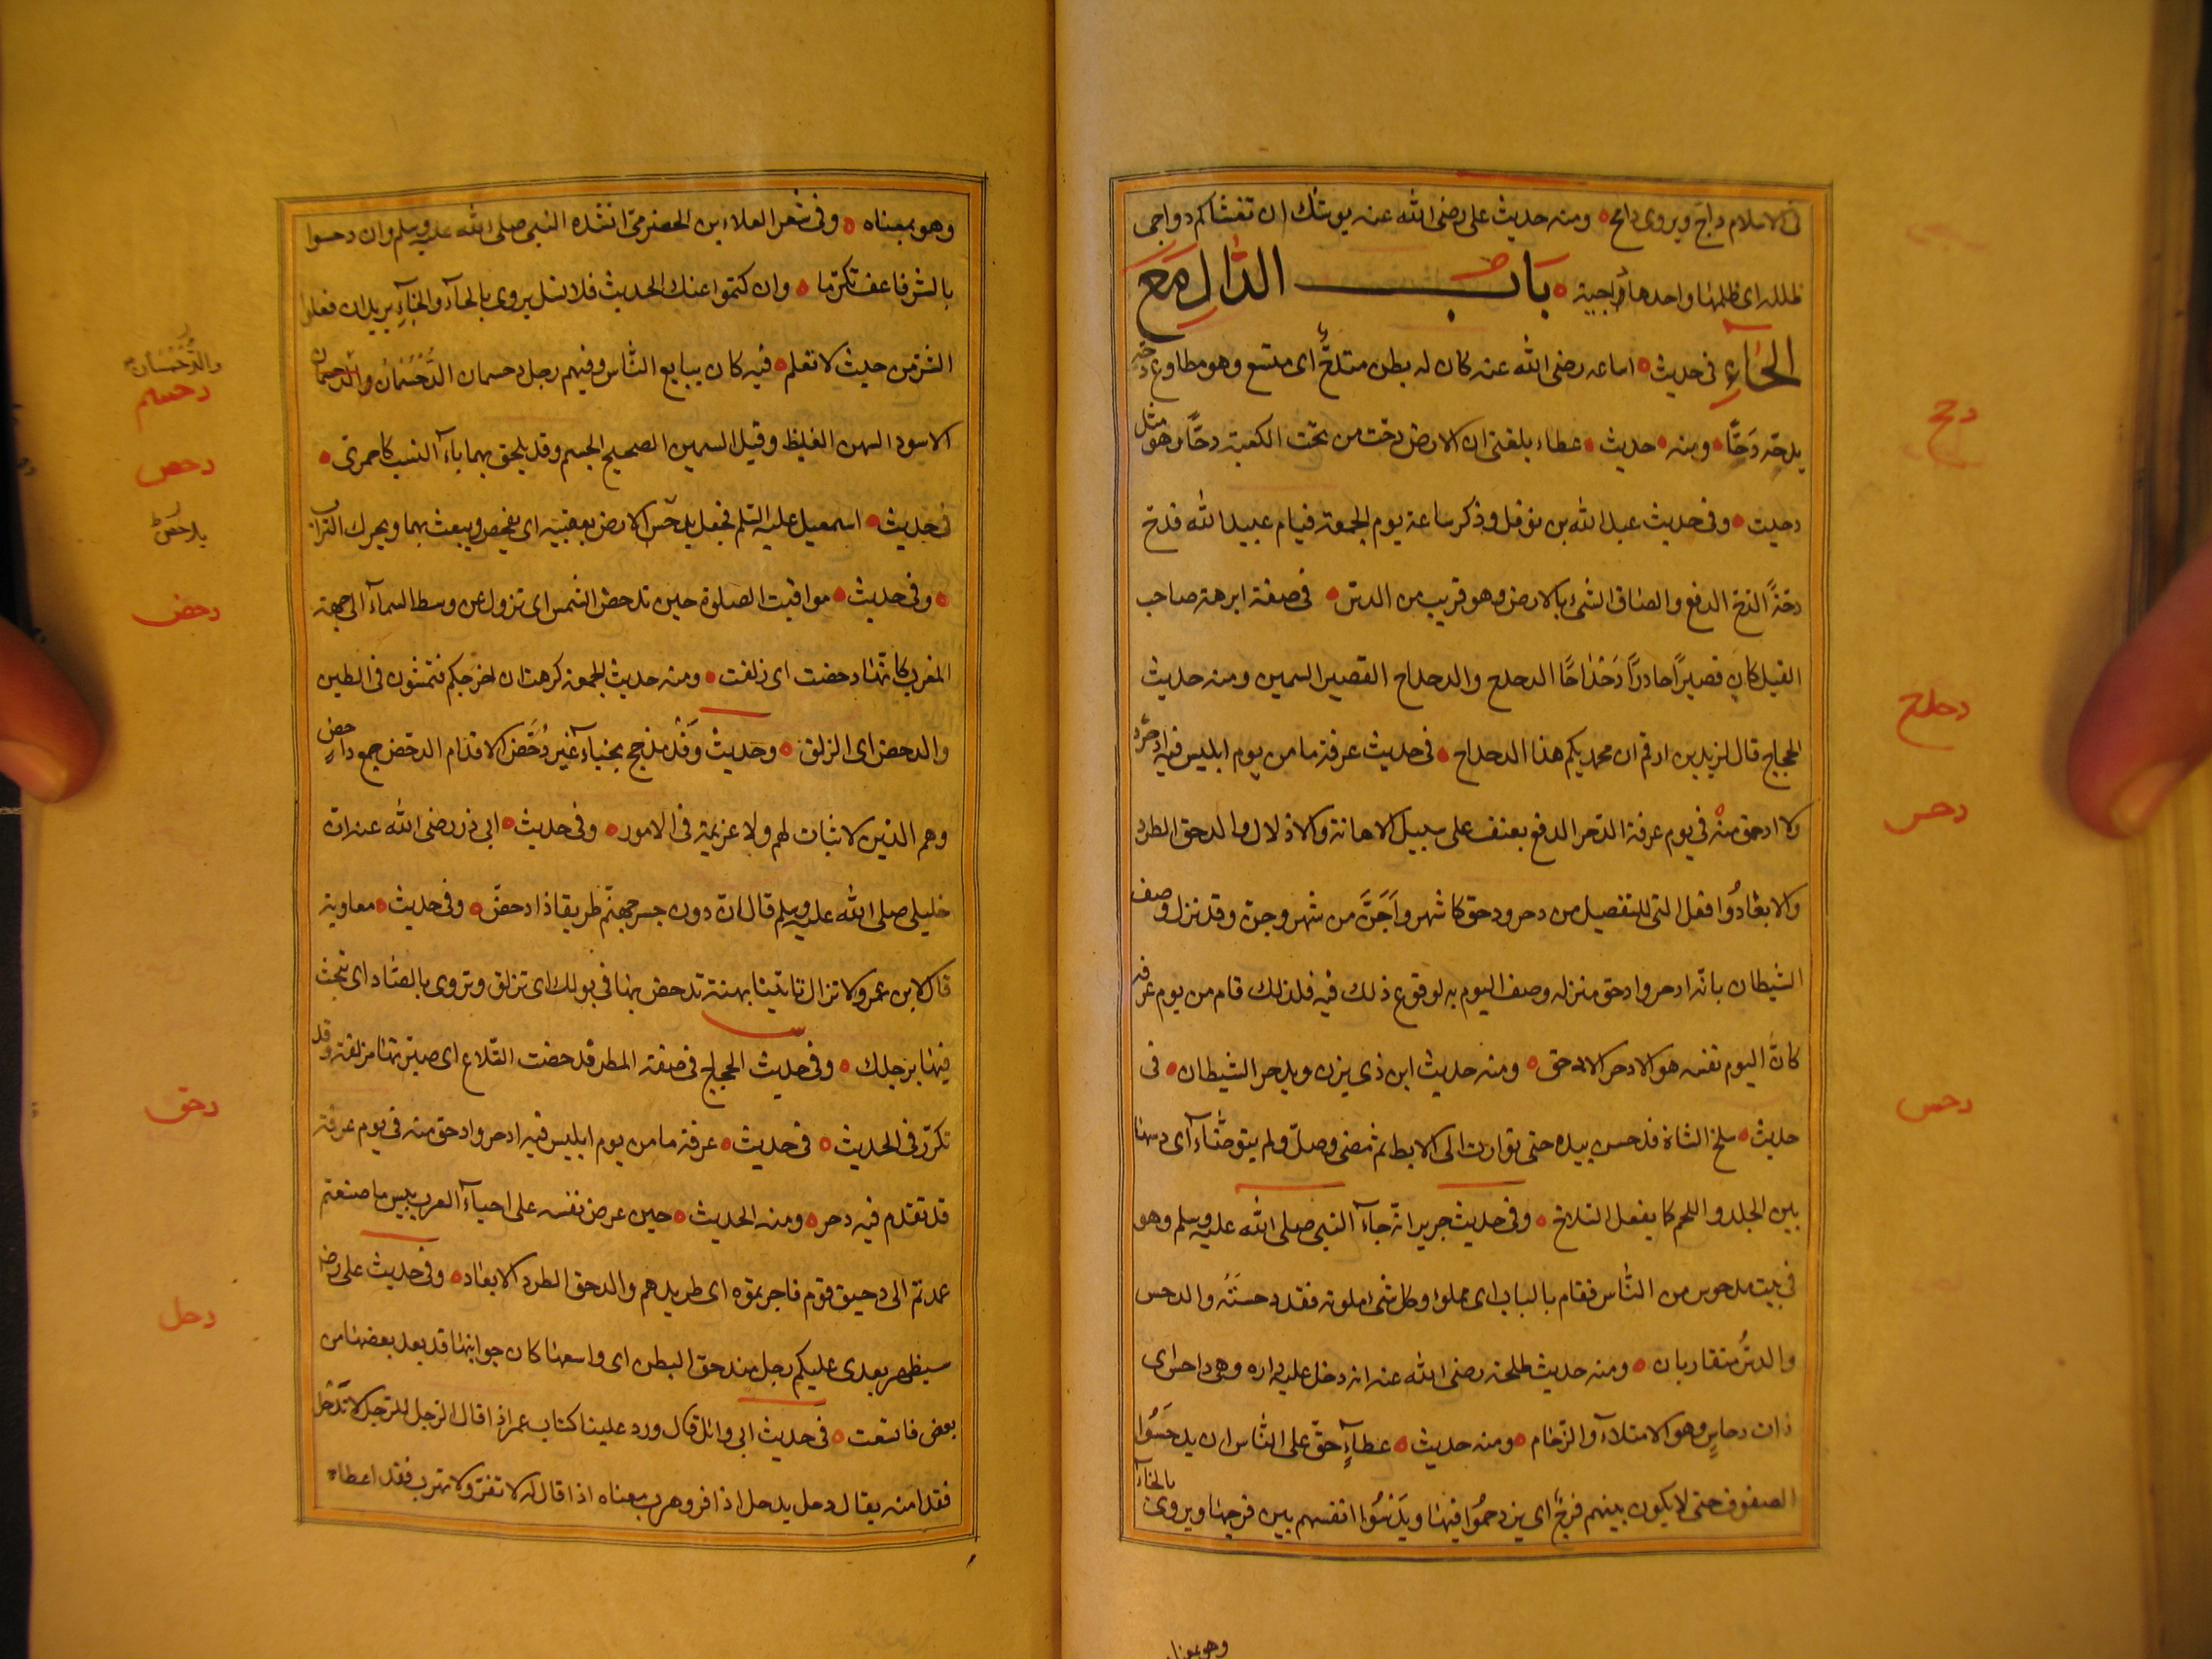 فى الاسلام داج ويروى دامج ومنه حديث على رضى الله عنه يوشك ان تغشاكم دواجى
ظلله اى ظلمها واحدها داجية باب الدال مع
الحاء فى حديث اسامه رضى الله عنه كان له بطن مندحّ اى متسع وهو مطاوع دحّه
يدحّه دَحًّا ومنه حديث عطاء بلغنى ان الارض دحّت من تحت الكعبة دحًّا وهو مثل
دحيت وفى حديث عبد الله بن نوفل وذكر ساعة يوم الجمعة فنام عبيد الله فدحّ
دحّةً الدحّ الدفع والصاق الشئ بالارض وهو قريب من الدسّ فى صفة ابرهة صاحب
الفيل كان قصيرًا حادرًا دَحْدَاحًا الدحدح والدحداح القصير السمين ومنه حديث
الحجاج قال لزيد بن ارقم ان محمديكم هذا الدحداح فى حديث عرفة ما من يوم ابليس فيه ادحر
ولا ادحق منه فى يوم عرفة الدحر الدفع بعنف على سبيل الاهانة والاذلال والدحق الطرد
والابعاد وافعل التى للتفضيل من دحر ودحق كاشهر واَجَنَّ من شهر وجنّ وقد نزل وصف
الشيطان بانّه ادحر وادحق منزله وصف اليوم به لوقوع ذلك فيه فلذلك قام من يوم عرفه
كانّ اليوم نفسه هو الادحر الادحق ومنه حديث ابن ذى يزن ويدحر الشيطان فى
حديث سلخ الشاة فدحس بيده حتى توارت الى الابط ثم مضى وصلّى ولم يتوضّاء اى دسها
بين الجلد واللحم كما يفعل السلاخ وفى حديث جرير انه جاء النبى صلى الله عليه وسلم وهو
فى بيت مدحوس من الناس فقام بالباب اى مملوا وكل شئ املوته فقد دحستَه والدحس
والدسّ متقاربان ومنه حديث طلحة رضى الله عنه انه دخل عليه داره وهى داحس اى
ذات دحاسٍ وهو الامتلاء والزحام ومنه حديث عطاءٍ حق على الناس ان يدحَسُوا
الصفوف حتى لا يكون بينهم فرجٌ اى يزدحمُوا فيها ويَدُسُّوا انفسهم بين فرجها ويروى بالخاء
دحح
دحدح
دحر
دحس
وهو بمعناه
وهو بمعناه وفى شعر العلاء بن الحضرمىّ انشده النبى صلى الله عليه وسلم وان دحسوا
بالشر فاعف تكرّما وان كتموا عنك الحديث فلا تسل يروى بالحاء والخاء يريد ان فعلوا
الشر من حيث لا تعلم فيه كان يبايع الناس وفيهم رجل دحسمان الدُحْسُمَان والدحمسان
الاسود السمن الغليظ وقيل السمين الصحيح الجسم وقد يلحق بهما ياء النسب كاحمرى
فى حديث اسمعيل عليه السّلم فجعل يدحص الارض بعقبيه اى يفحص ويبعث بهما ويحرك التراب
وفى حديث مواقيت الصلوة حين تدحض الشمس اى تزول عن وسط السماء الى جهة
المغرب كانّها دحضت اى زلقت ومنه حديث الجمعة كرهت ان اخرجكم فتمشون فى الطين
والدحض اى الزلق وحديث وَفْد مذحج نجباء غير دُحَّض الاقدام الدحّض جمع داحض
وهم الذين لا ثبات لهم ولا عزيمة فى الامور وفى حديث ابى ذر رضى الله عنه ان
خليلى صلى الله عليه وسلم قال ان دون جسر جهنم طريقا ذا دحض وفى حديث معاوية
قال لابن عمرو لا تزال تاتينا بهنة تدحض بها فى بولك اى تزلق وتروى بالصاد اى تبحث
فيها برجلك وفى حديث الحجاج فى صفة المطر فدحضت التّلاع اى صيرتها مزلقة وقد
تكرّر فى الحديث فى حديث عرفة ما من يوم ابليس فيه ادحر وادحق منه فى يوم عرفة
قد تقدم فيه دحر ومنه الحديث حين عرض نفسه على احياء العرب بيس ما صنعتم
عمدتم الى دحيق قوم فاجرتموه اى طريدهم والدحق الطرد الابعاد وفى حديث على رضـ
سيظهر بعدى عليكم رجل مندحق البطن اى واسعها كان جوانبها قد بعد بعضها من
بعض فاتسعت فى حديث ابى وائل قال ورد علينا كتاب عمر اذا قال الرجل للرجل لا تَدْحَل
فقد امنه يقال دحل يدحل اذا فر وهرب معناه اذا قال له لا تفرّ ولا تهرب فقد اعطاه
دحسم
دحص
يدحص
دحض
دحق
دحل